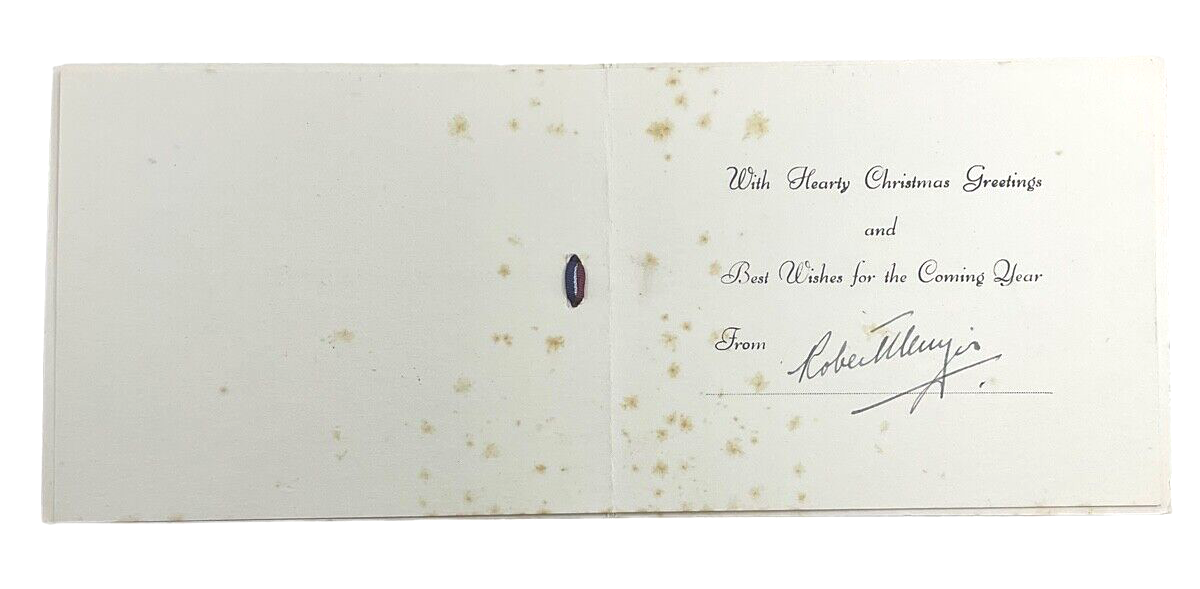 With Hearty Christmas Greetings
and
Best Wishes for the Coming Year
From Robert Menzies